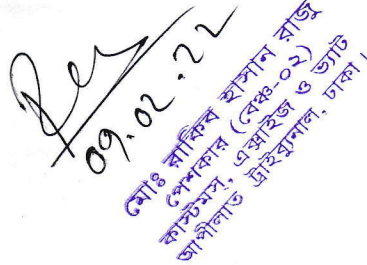 09.02.22
মোঃ রাকিব হাসান রাজু
পেশকার (বেঞ্চ-০২)
কাস্টমস, এক্সাইজ ও ভ্যাট
আপীলাত ট্রাইব্যুনাল, ঢাকা।